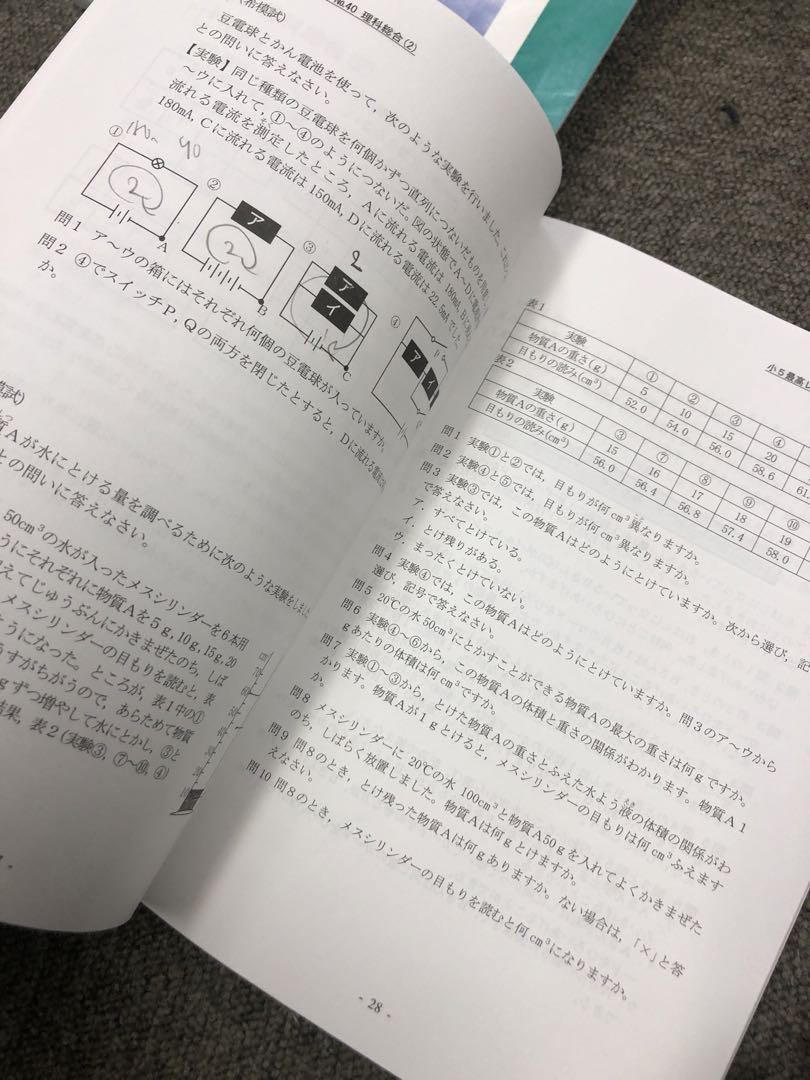 №40 理科総合(2)
(希模試)
豆電球とかん電池を使って，次のような実験を行いました
との問いに答えなさい。
【実験】同じ種類の豆電球を何個かずつ直列につないだものを
～ウに入れて，①～④のようにつないだ。図の状態でA～Dに
流れる電流を測定したところ，Aに流れる電流は180mA, Bに
180mA, Cに流れる電流は150mA, Dに流れる電流は22.5mAでした
①
②
③
④
ア
ア
イ
ア
イ
A
B
C
2
問1 ア～ウの箱にはそれぞれ何個の豆電球が入っていますか。
問2 ④でスイッチP, Qの両方を閉じたとすると，Dに流れる電流は
か。
模試)
質Aが水にとける量を調べるために次のような実験をしました
との問いに答えなさい。
50cm³の水が入ったメスシリンダーを6本用
うにそれぞれに物質Aを5g, 10g, 15g, 20
えてじゅうぶんにかきまぜたのち，しば
メスシリンダーの目もりを読むと，表
ようになった。ところが，表1中の①
うすがちがうので，あらためて物質
gずつ増やして水にとかし，③と
結果，表2(実験③, ⑦～⑩, ④)
cm³
小5最高レ
表1
実験 ① ② ③ ④
物質Aの重さ(g) 5 10 15 20
目もりの読み(cm³) 52.0 54.0 56.0 58.6 61
表2
実験 ③ ⑦ ⑧ ⑨ ⑩
物質Aの重さ(g) 15 16 17 18 19
目もりの読み(cm³) 56.0 56.4 56.8 57.4 58.0
問1 実験①と②では，目もりが何cm³異なりますか。
問2 実験④と⑤では，目もりが何cm³異なりますか。
問3 実験③では，この物質Aはどのようにとけていますか。次から選び，記
で答えなさい。
ア．すべてとけている。
イ．とけ残りがある。
ウ．まったくとけていない。
問4 実験④では，この物質Aはどのようにとけていますか。問3のア～ウから
選び，記号で答えなさい。
問5 20℃の水50cm³にとかすことができる物質Aの最大の重さは何gですか。
問6 実験④～⑥から，この物質Aの体積と重さの関係がわかります。物質A1
gあたりの体積は何cm³ですか。
問7 実験①～③から，とけた物質Aの重さとふえた水よう液の体積の関係がわ
かります。物質Aが1gとけると，メスシリンダーの目もりは何cm³ふえます
か。
問8 メスシリンダーに20℃の水100cm³と物質A50gを入れてよくかきまぜた
のち，しばらく放置しました。物質Aは何gとけますか。
問9 問8のとき，とけ残った物質Aは何gありますか。ない場合は，「×」と答
えなさい。
問10 問8のとき，メスシリンダーの目もりを読むと何cm³になりますか。
- 28 -